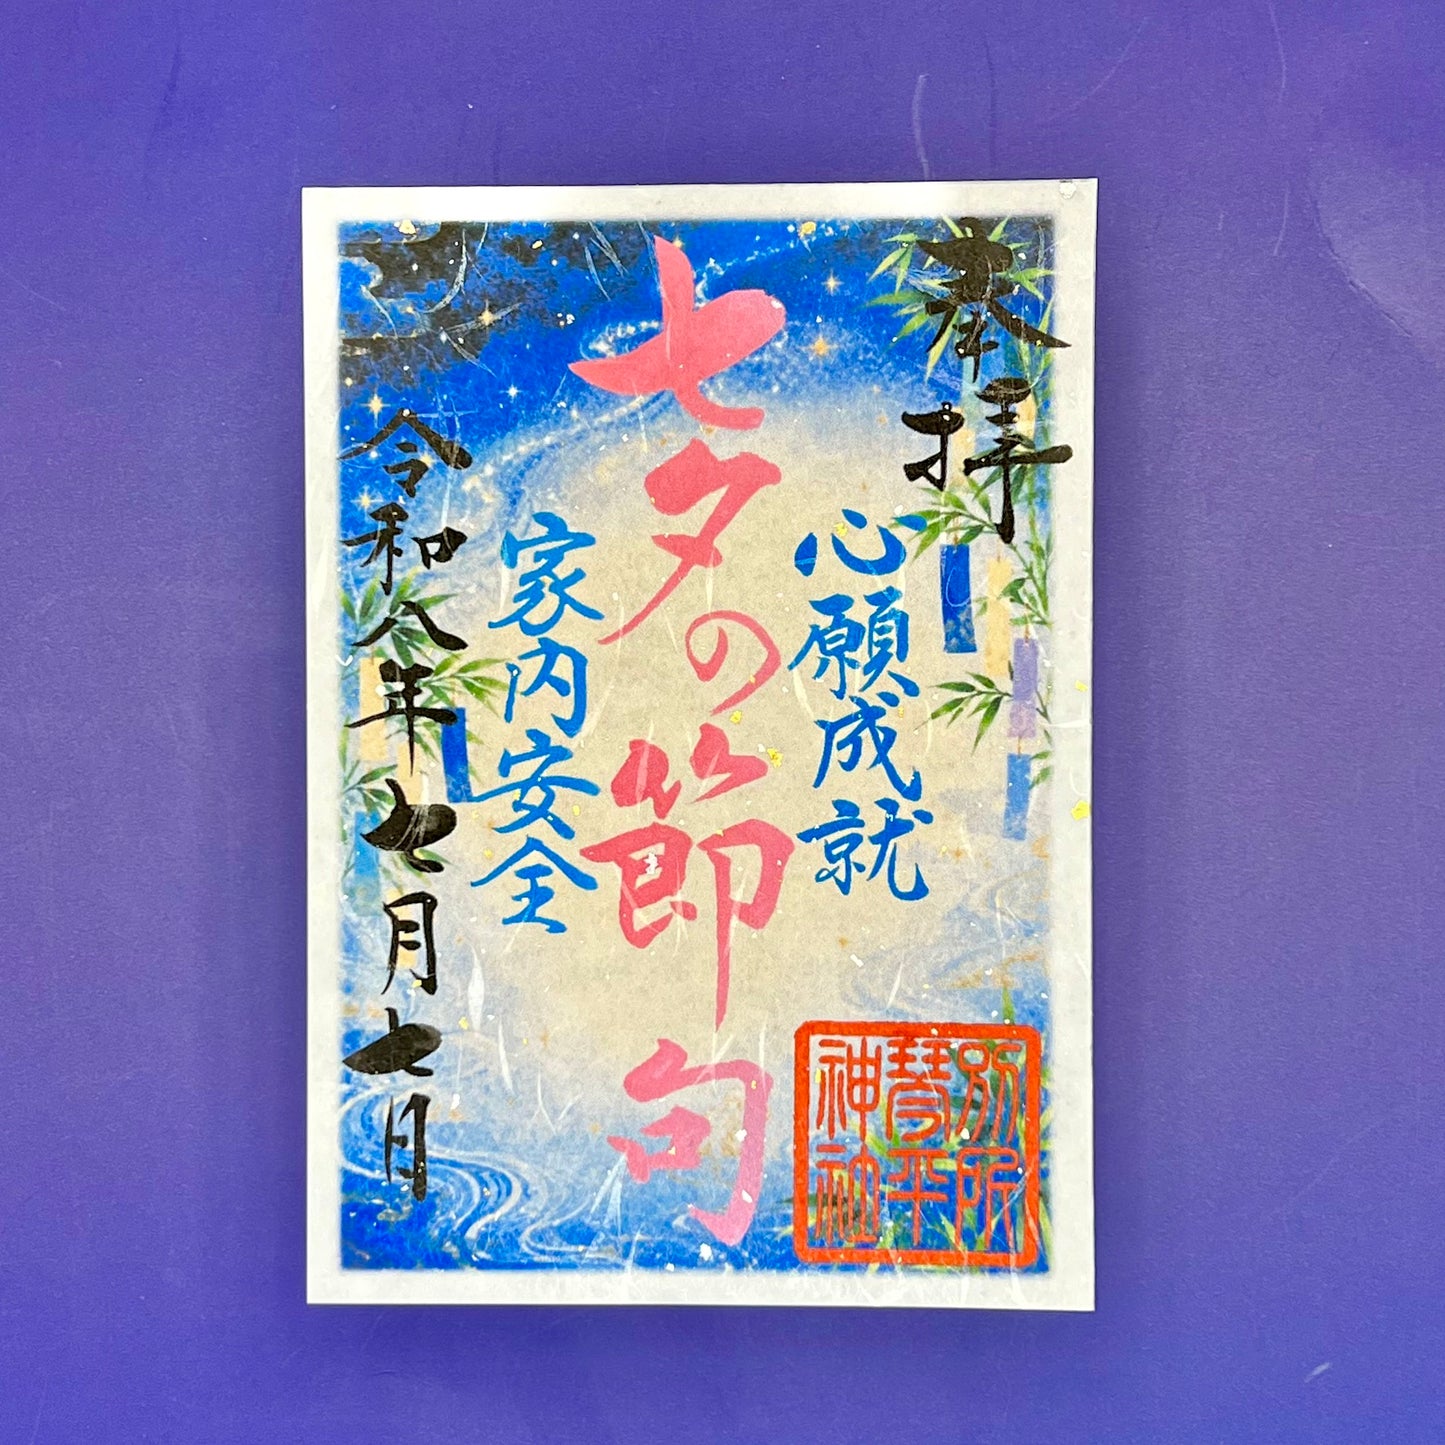 奉拝
心願成就
七夕の節句
家内安全
令和八年七月七日
別所
琴平
神社